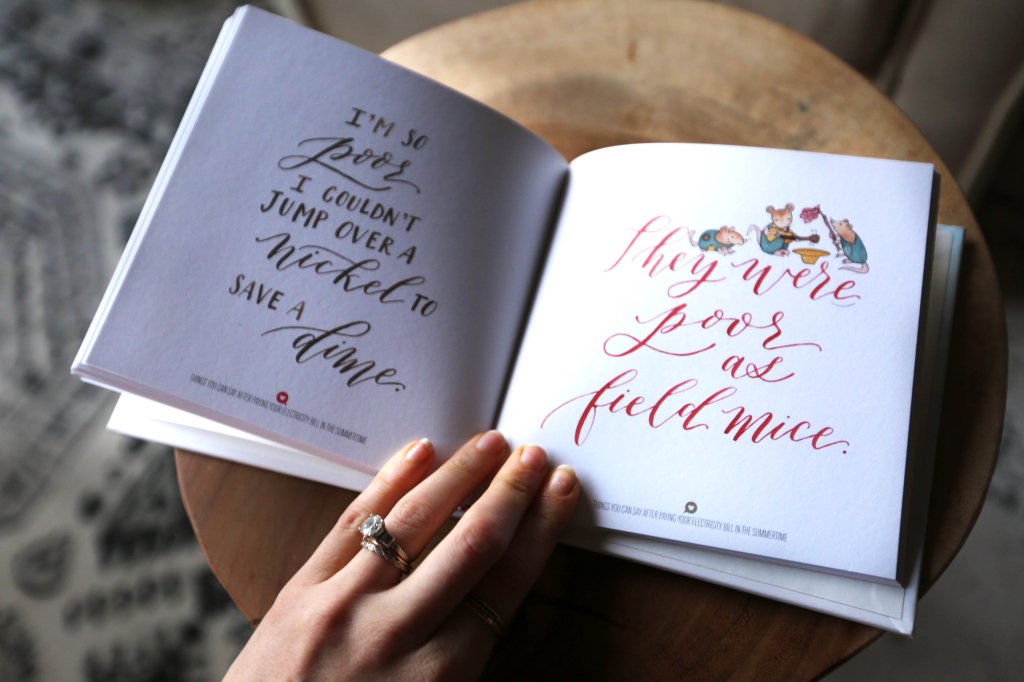 I'M SO
poor
I COULDN'T
JUMP OVER A
nickel TO
SAVE A
dime.
THINGS YOU CAN SAY AFTER PAYING YOUR ELECTRICITY BILL IN THE SUMMERTIME
They were
poor
as
field mice.
THINGS YOU CAN SAY AFTER PAYING YOUR ELECTRICITY BILL IN THE SUMMERTIME